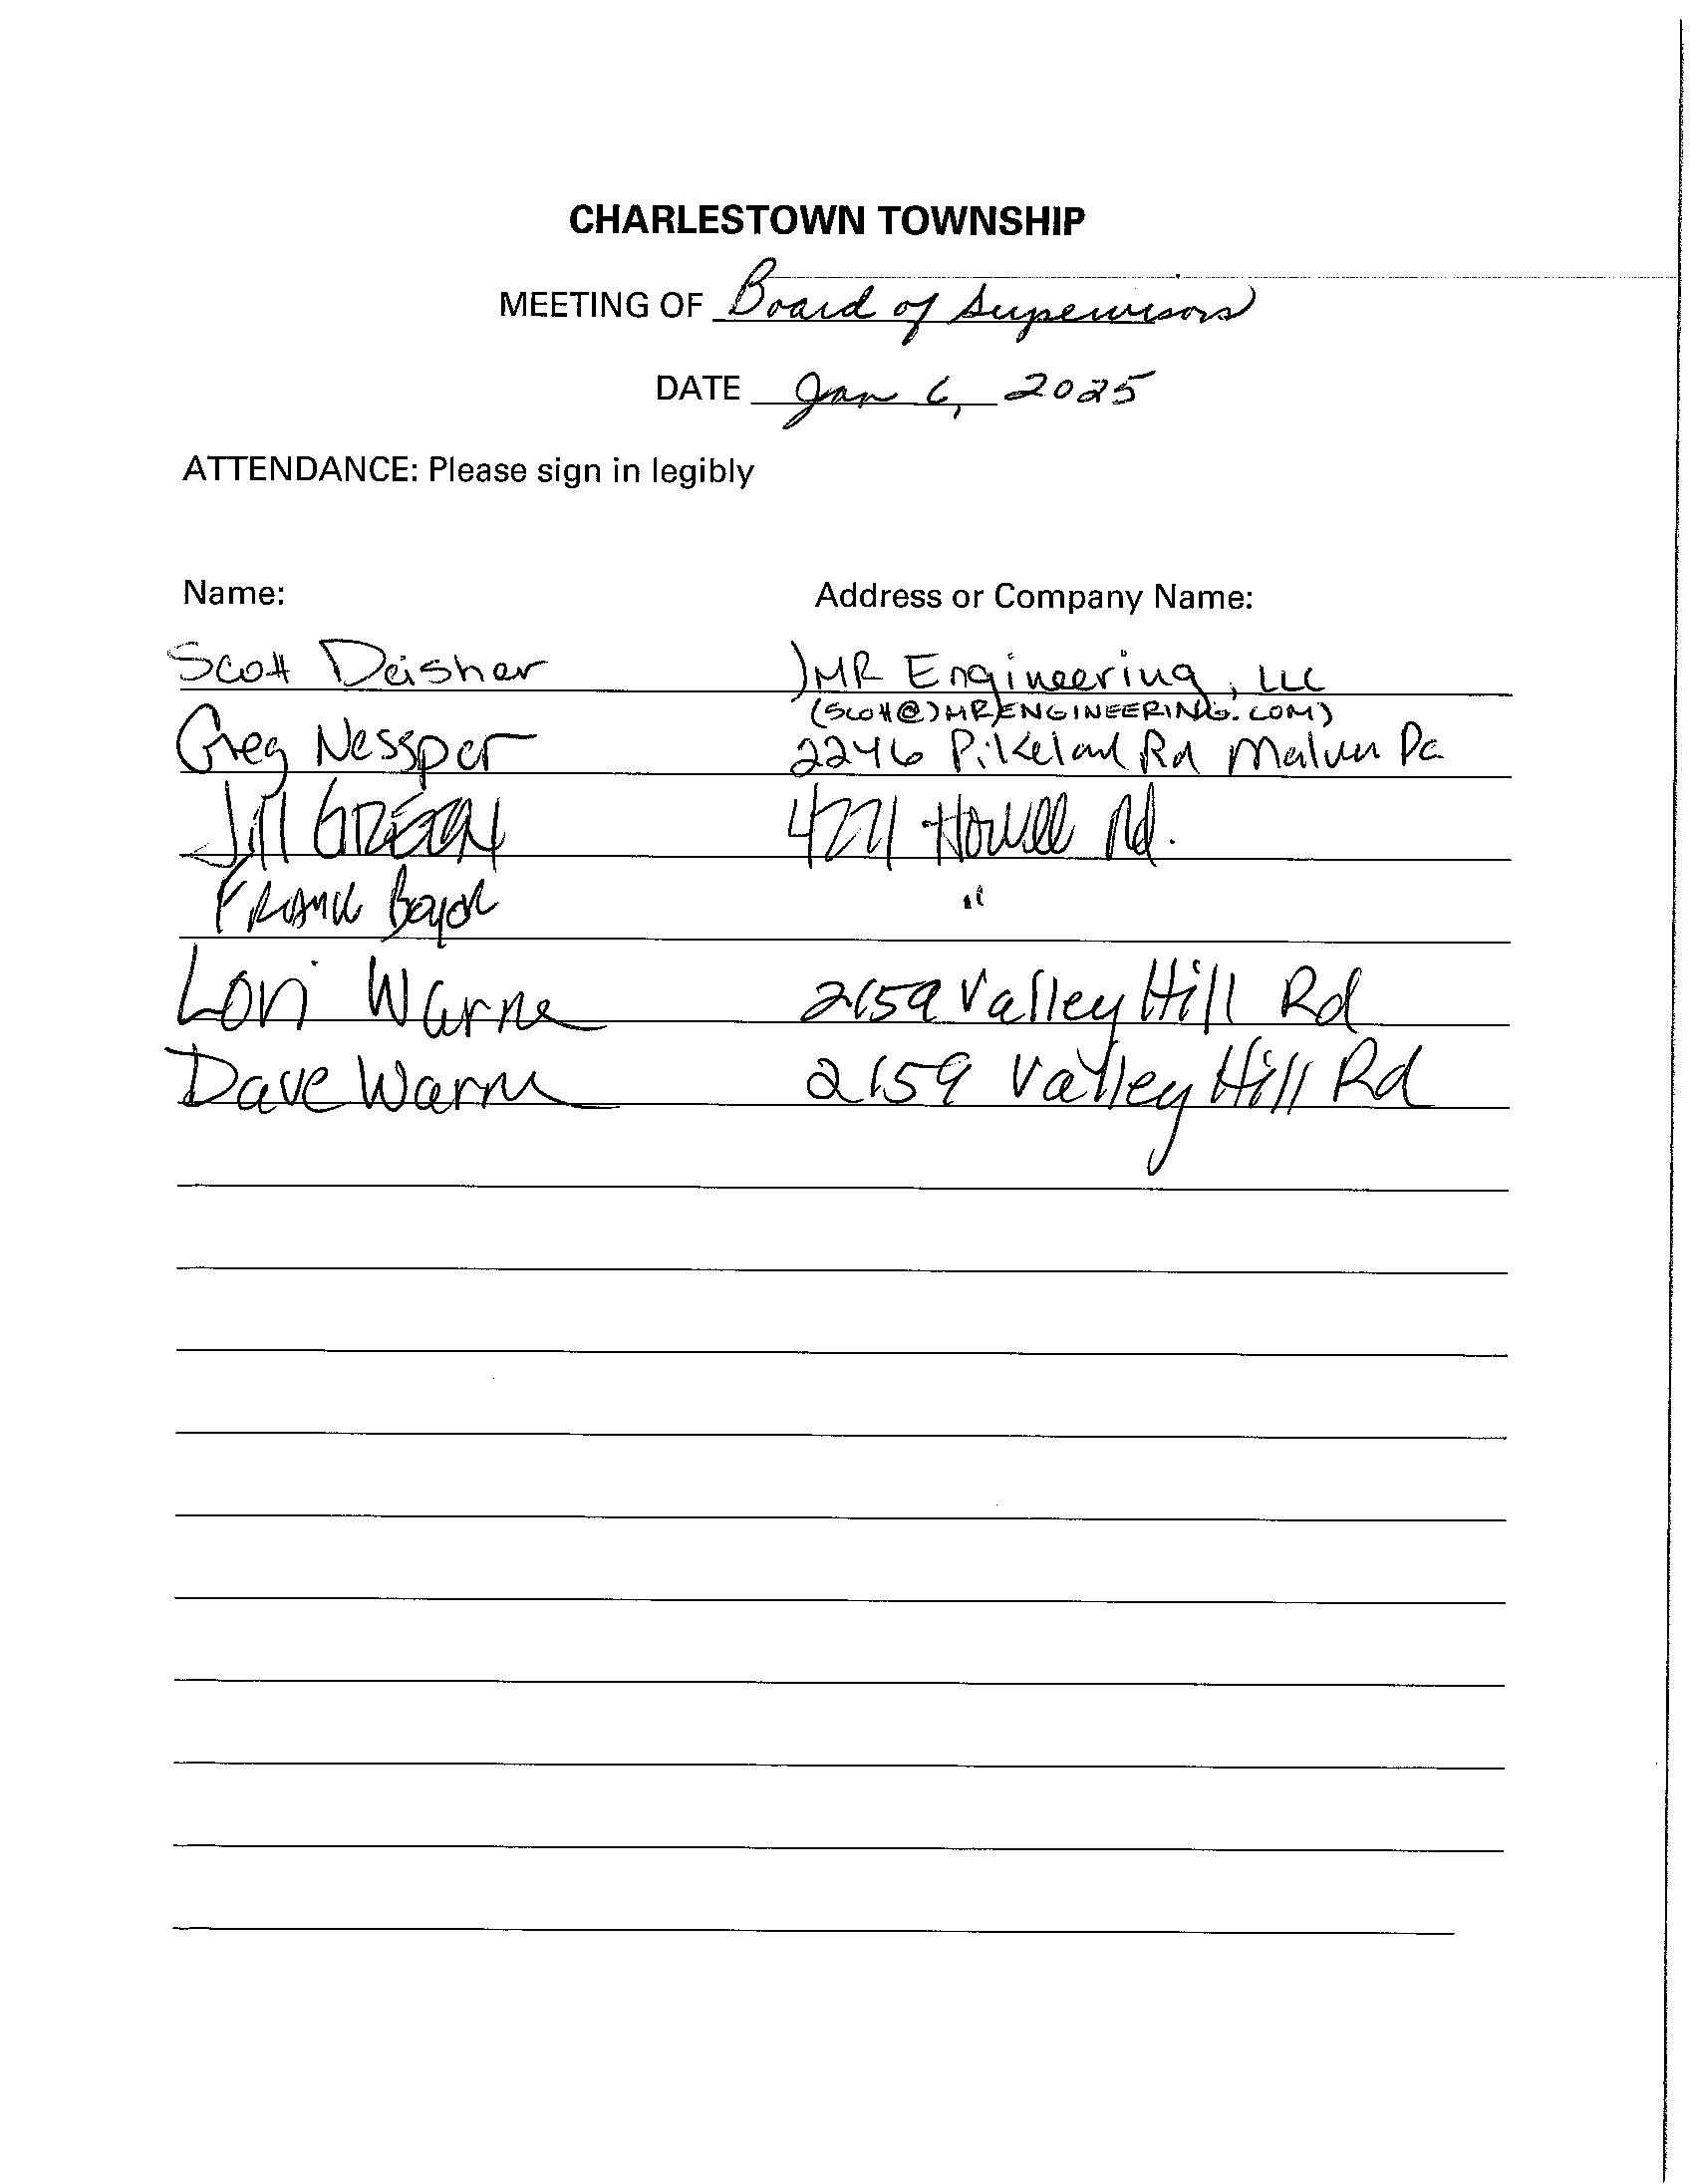 CHARLESTOWN TOWNSHIP
MEETING OF Board of Supervisors
DATE Jan 6, 2025
ATTENDANCE: Please sign in legibly
Name: Address or Company Name:
Scott Deisher JMR Engineering, LLC
(SCOTT@JMRENGINEERING.COM)
Greg Nessper 2246 Pikeland Rd Malvern Pa
Jill GREEN 4221 Howell Rd.
FRANK "
Lori Warne 2659 Valley Hill Rd
Dave Warne 2659 Valley Hill Rd